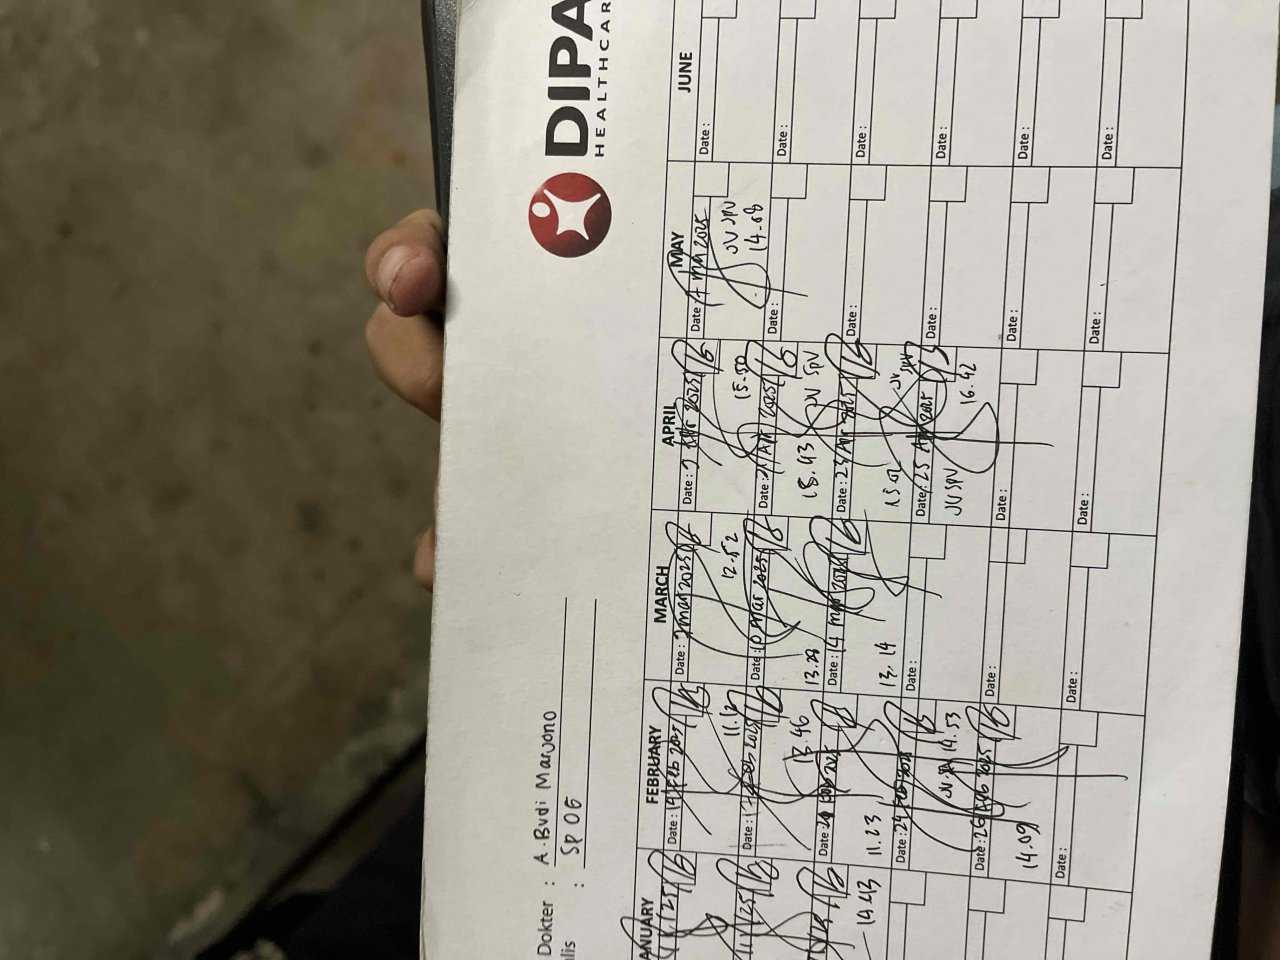 DIPA
HEALTHCAR
Dokter : A. Budi Marjono
lis : SP OG
ANUARY
14.43
FEBRUARY
Date : 14 Feb 2025
11.12
Date :
13.46
Date :
11.23
Date : 24 Feb 2025
JV SPV 14.53
Date : 26 Feb 2025
14.09
Date :
MARCH
Date : 7 mar 2025
12.52
Date : 10 mar 2025
13.28
Date : 14 mar 2025
13.14
Date :
Date :
Date :
APRIL
Date : 7 Apr 2025
15.50
Date : 21 Apr 2025
18.43 JV SPV
Date : 23 Apr 2025
15.02 JV SPV
Date : 25 Apr 2025
JV SPV 16.42
Date :
Date :
MAY
Date : mei 2025
JV SPV
14.08
Date :
Date :
Date :
Date :
Date :
JUNE
Date :
Date :
Date :
Date :
Date :
Date :